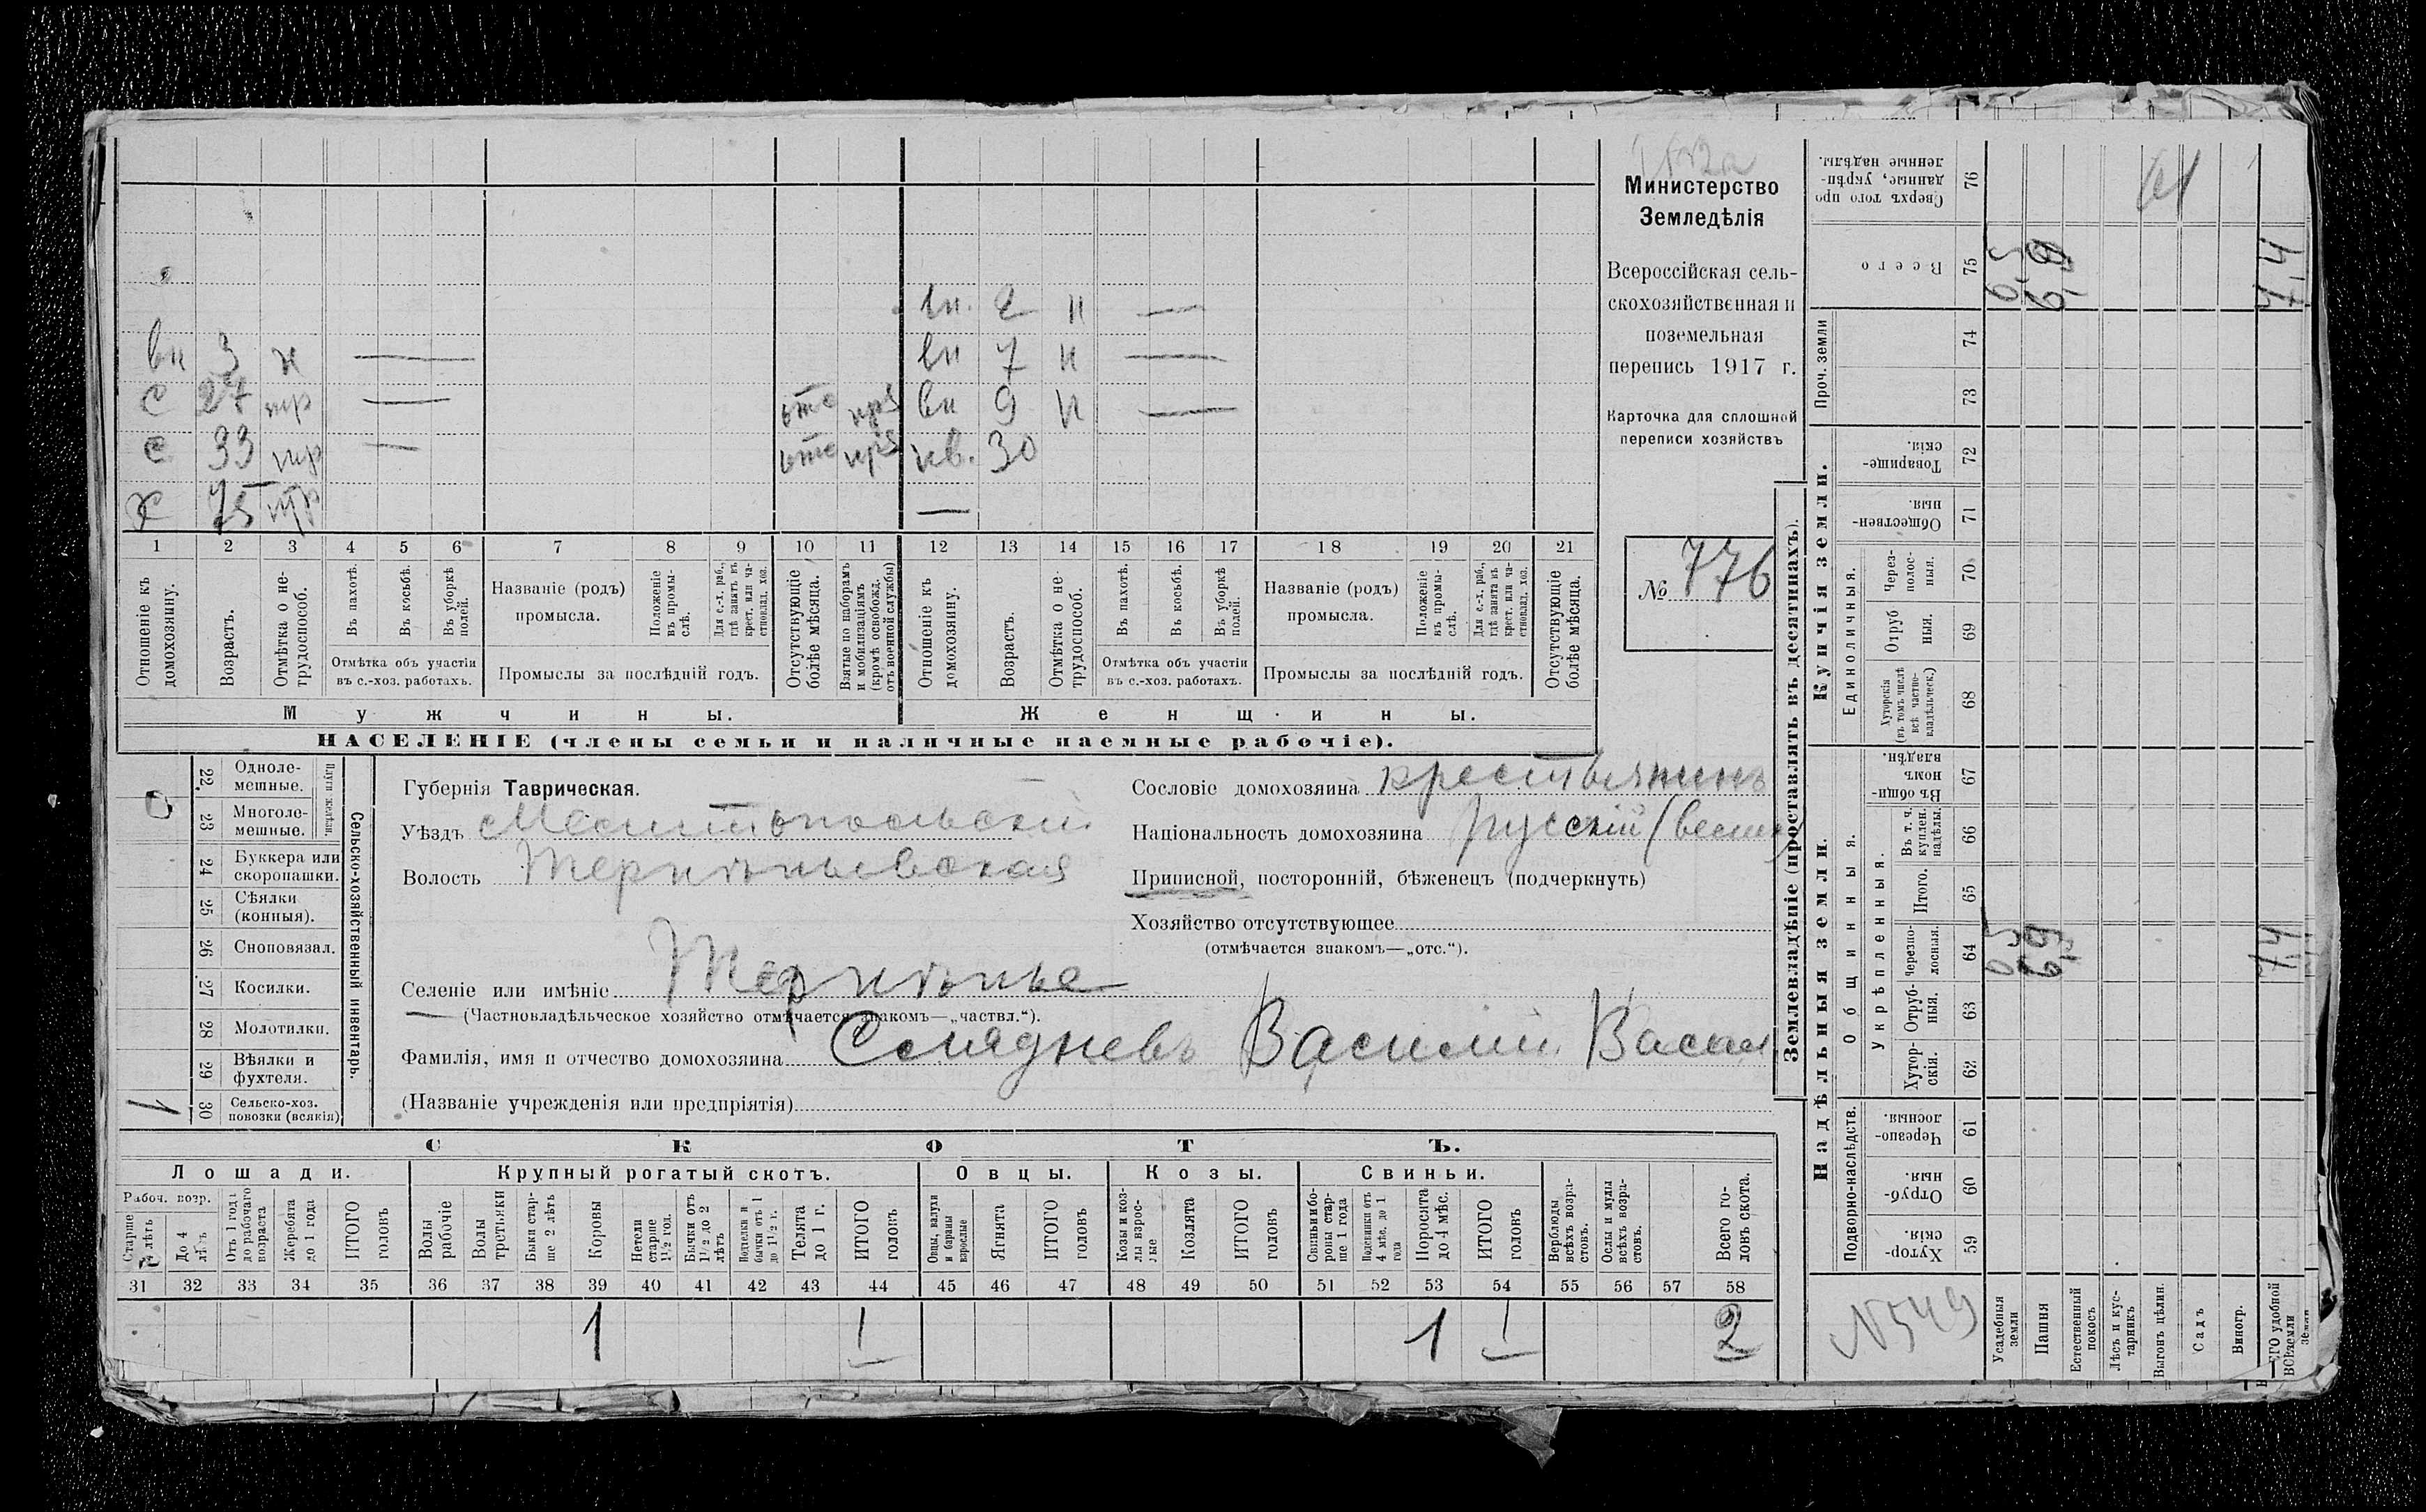 Министерство
Земледѣлія
Всероссійская сель-
скохозяйственная и
поземельная
перепись 1917 г.
Карточка для сплошной
переписи хозяйствъ
№ 776
вн. 2 н —
вн 3 н — вн 7 н —
с 27 тр — отс вн 9 н —
с 33 тр — отс нв. 30
х 75 тр —
1 2 3 4 5 6 7 8 9 10 11 12 13 14 15 16 17 18 19 20 21
Отношеніе къ домохозяину.
Возрастъ.
Отмѣтка о не-трудоспособ.
Въ пахотѣ.
Въ косьбѣ.
Въ уборкѣ полей.
Названіе (родъ) промысла.
Положеніе въ промы-слѣ.
Для с.-х. раб., гдѣ занятъ въ крест. или ча-стновлад. хоз.
Отсутствующіе болѣе мѣсяца.
Взятые по наборамъ и мобилизаціямъ (кромѣ освобожд. отъ военной службы)
Отношеніе къ домохозяину.
Возрастъ.
Отмѣтка о не-трудоспособ.
Въ пахотѣ.
Въ косьбѣ.
Въ уборкѣ полей.
Названіе (родъ) промысла.
Положеніе въ промы-слѣ.
Для с.-х. раб., гдѣ занята въ крест. или ча-стновлад. хоз.
Отсутствующіе болѣе мѣсяца.
Отмѣтка объ участіи въ с.-хоз. работахъ.
Промыслы за послѣдній годъ.
Отмѣтка объ участіи въ с.-хоз. работахъ.
Промыслы за послѣдній годъ.
Мужчины.
Женщины.
НАСЕЛЕНІЕ (члены семьи и наличные наемные рабочіе).
Сельско-хозяйственный инвентарь.
Плуги желѣзн.
22 Одноле-мешные.
23 Многоле-мешные.
24 Буккера или скоропашки.
25 Сѣялки (конныя).
26 Сноповязал.
27 Косилки.
28 Молотилки.
29 Вѣялки и фухтеля.
30 Сельско-хоз. повозки (всякія) 1
Губернія Таврическая.
Уѣздъ Мелитопольскій
Волость Терпѣньевская
Селеніе или имѣніе Терпѣнье
— (Частновладѣльческое хозяйство отмѣчается знакомъ—„частвл.“).
Фамилія, имя и отчество домохозяина Василій Васил
(Названіе учрежденія или предпріятія)
Сословіе домохозяина крестьянинъ
Національность домохозяина русскій
Приписной, посторонній, бѣженецъ (подчеркнуть)
Хозяйство отсутствующее
(отмѣчается знакомъ—„отс.“).
СКОТЪ.
Лошади.
Крупный рогатый скотъ.
Овцы.
Козы.
Свиньи.
Рабоч. возр.
Старше 4 лѣтъ
До 4 лѣтъ
Отъ 1 года до рабочаго возраста
Жеребята до 1 года
ИТОГО головъ
Волы рабочіе
Волы третьяки
Быки стар-ше 2 лѣтъ
Коровы
Нетели старше 1½ год.
Бычки отъ 1½ до 2 лѣтъ
Нетелки и бычки отъ 1 до 1½ г.
Телята до 1 г.
ИТОГО головъ
Овцы, валухи и бараны взрослые
Ягнята
ИТОГО головъ
Козы и коз-лы взрос-лые
Козлята
ИТОГО головъ
Свиньи и бо-ровы стар-ше 1 года
Подсвинки отъ 4 мѣс. до 1 года
Поросята до 4 мѣс.
ИТОГО головъ
Верблюды всѣхъ возра-стовъ.
Ослы и мулы всѣхъ возра-стовъ.
Всего го-ловъ скота.
31 32 33 34 35 36 37 38 39 40 41 42 43 44 45 46 47 48 49 50 51 52 53 54 55 56 57 58
1 1 1 1 2
Землевладѣніе (проставлять въ десятинахъ).
Надѣльныя земли.
Купчія земли.
Проч. земли
Подворно-наслѣдств.
Общинныя.
Укрѣпленныя.
Единоличныя.
Сверхъ того про-данные, укрѣп-ленные надѣлы. 76
Всего 75 0,5 6,9 7,4
74
73
Товарище-скія. 72
Обществен-ныя. 71
Через-полос-ныя. 70
Отруб ныя. 69
Хуторскія (въ томъ числѣ всѣ частно-владѣльческ.) 68
Въ общи-номъ владѣн. 67
Въ т. ч. куплен. надѣлы. 66
Итого. 65
Черезпо-лосныя. 64 0,5 6,9 7,4
Отруб-ныя. 63
Хутор-скія. 62
Черезпо-лосныя. 61
Отруб-ныя. 60
Хутор-скія. 59
N 549
Усадебныя земли
Пашня
Естественный покосъ
Лѣсъ и кус-тарникъ
Выгонъ цѣлин.
Садъ
Виногр.